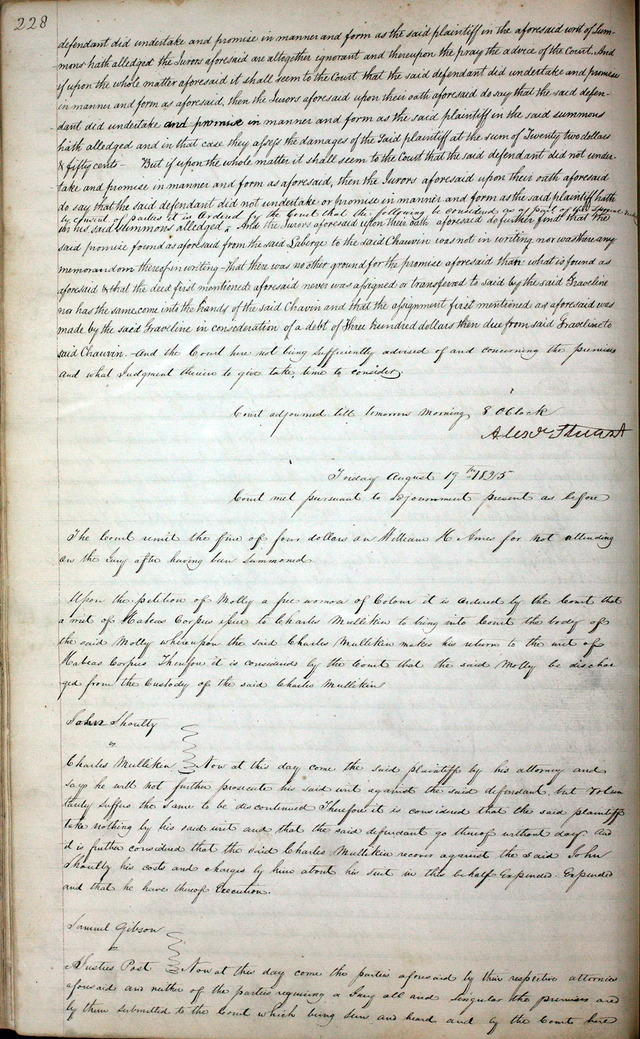 228
defendant did undertake and promise in manner and form as the said plaintiff in the aforesaid writ of Sum-
mons hath alledged the Jurors aforesaid are altogether ignorant and thereupon the pray the advice of the Court. And
if upon the whole matter aforesaid it shall seem to the Court that the said defendant did undertake and promise
in manner and form as aforesaid, then the Jurors aforesaid upon their oath aforesaid do say that the said defen-
dant did undertake and promise in manner and form as the said plaintiff in the said summons
hath alledged and in that case they assess the damages of the Said plaintiff at the sum of Twenty two dollars
& fifty cents - But if upon the whole matter it shall seem to the Court that the said defendant did not under-
take and promise in manner and form as aforesaid, then the Jurors aforesaid upon their oath aforesaid
do say that the said defendant did not undertake or promise in manner and form as the said plaintiff hath
by consent of parties it is Ordered by the Court that the following be considered as a part of the
in his said summons alledged & And the Jurors aforesaid upon their oath aforesaid do further find that the
said promise found as aforesaid from the said Laberge to the said Chauvin was not in writing nor was there any
memorandom thereof in writing - That there was no other ground for the promise aforesaid than what is found as
aforesaid & that the deed first mentioned aforesaid never was assigned or transferred to said by the said Graveline
no has the same come into the hands of the said Chavin and that the assignment first mentioned as aforesaid was
made by the said Graveline in consideration of a debt of Three hundred dollars then due from said Graveline to
said Chauvin. And the Court here not being sufficiently advised of and concerning the premises
and what Judgment therein to give take time to consider.
Court adjourned till tomorrow morning 8 OClock
Alexr Stuart
Friday August 19th 1825
Court met pursuant to adjournment present as before
The Court remit the fine of four dollars on William H Ames for not attending
on the Jury after having been Summoned
Upon the petition of Molly a free woman of Colour it is ordered by the Court that
a writ of Habeas Corpus issue to Charles Mullikin to bring into Court the body of
the said Molly whereupon the said Charles Mullikin makes his return to the writ of
Habeas Corpus Therefore it is considered by the Court that the said Molly be dischar
ged from the Custody of the said Charles Mullikin
John Shoultz
vs
Charles Mullikin Now at this day come the said plaintiff by his attorney and
says he will not further prosecute his said writ against the said defendant but Volun
tarily suffers the same to be discontinued Therefore it is considered that the said plaintiff
take nothing by his said writ and that the said defendant go thereof without day And
it is further considered that the said Charles Mullikin recover against the said John
Shoultz his costs and charges by him about his Suit in this behalf Expended Expended
and that he have thereof Execution.
Samuel Gibson
vs
Justus Post Now at this day come the parties aforesaid by their respective attornies
aforesaid and neither of the parties requiring a Jury all and Singular the premises are
by them submitted to the Court which being seen and heard and by the Courts here